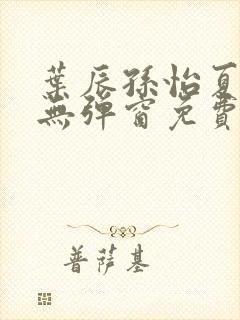 葉辰孫怡夏
無彈窗免費
普薩基